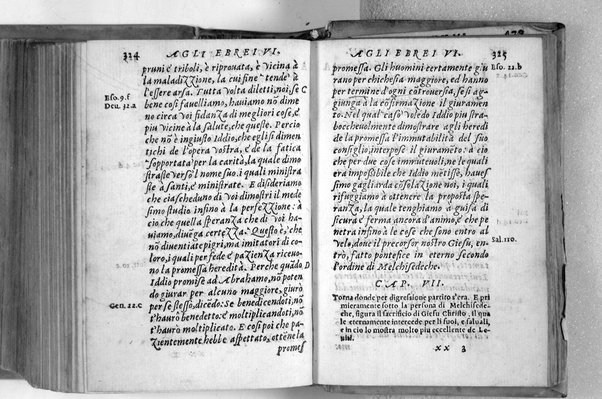 334 AGLI EBREI VI.
pruni e' triboli, è riprovata, e vicina à
la maladizzione, la cui fine tende à
l'essere arsa. Tutta volta diletti noi, se C
bene cosi favelliamo, haviamo nõ dime
Eso. 9.f
no circa voi fidanza di megliori cose, e
Deu. 32.a
piu vicine à la salute, che queste. Percio
che nõ è ingiusto Iddio, che egli si dimen
tichi de l'opera vostra, e de la fatica
sopportata per la carità, la quale dimo
straste verso'l nome suo, i quali ministra
ste à santi, e ministrate. E disideriamo
che ciascheduno di voi dimostri il mede
simo studio infino à la perfezzione: à
cio che quella speranza che di voi ha-
viamo, divẽga certezza. Questo è, che
nõ diventiate pigri, ma imitatori di co-
loro, i quali per fede e' pazienza ricevo-
no la promessa heredità. Perche quãdo D
Iddio promise ad Abrahamo, nõ poten
do giurar per alcuno maggiore, giurò
Gen. 22.c
per se stesso, dicẽdo: Se benedicendoti, nõ
t'haurò benedetto: e' moltiplicandoti, nõ
t'haurò moltiplicato. E cosi poi che pa-
zientemente hebbe aspettato, ottẽne la
promess
AGLI EBREI VI. 335
promessa. Gli huomini certamente giu
Eso. 22.b
rano per chichesia maggiore, ed hanno
per termine d'ogni cõtroversia, se si ag-
giunga à la cõfirmazione il giuramen-
to. Nel qual caso volẽdo Iddio piu stra-
boccheuolmente dimostrare agli heredi
de la promessa l'immutabilità del suo
consiglio, interpose il giuramẽto: à cio
che per due cose immutevoli, ne le quali
era impossibile che Iddio mẽtisse, haues-
simo gagliarda cõsolazione noi, i quali
rifuggiamo à ottenere la proposta spe-
ranza, la quale tenghiamo à guisa di
sicura e' ferma ancora d'animo, e' che pe
netra infino à le cose che sono entro al
velo, dove il precursor nostro Giesu, en-
Sal. 110.
trò, fatto pontefice in eterno secondo
l'ordine di Melchisedeche.
CAP. VII.
Torna donde per digressione partito s'era. E pri
mieramente sotto la persona di Melchisede-
che, figura il sacrificio di Giesu Christo, il qua
le eternamente intercede per li suoi, e salvali,
e in cio lo mostra molto piu eccellente de Le-
viti.
XX 3